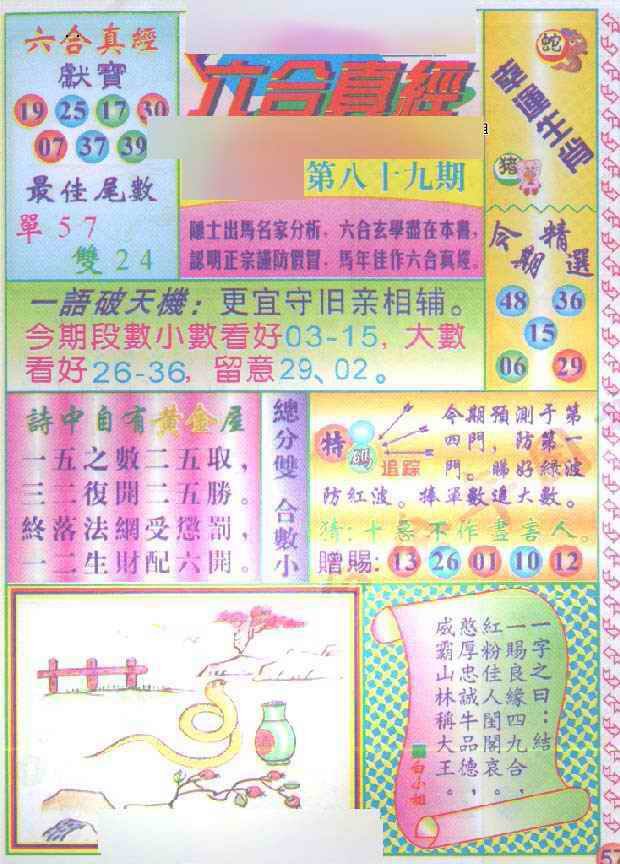 六合真經
獻寶
19 25 17 30
07 37 39
最佳尾數
單 5 7
雙 2 4
六合真經
第八十九期
隱士出馬名家分析，六合玄學盡在本書，
認明正宗謹防假冒，馬年佳作六合真經。
蛇
猪
今期精選
48 36
15
06 29
一語破天機：更宜守旧亲相辅。
今期段數小數看好03-15，大數
看好26-36，留意29、02。
詩中自有黃金屋
一五之數二五取，
三二復開二五勝。
終落法網受懲罰，
一二生財配六開。
總分雙 合數小
特碼
追踪
今期預測于第
四門，防第一
門。睇好綠波
防紅波。捧單數追大數。
猜：十惡不作盡善人。
贈賜：13 26 01 10 12
一字之曰：結
一賜良緣四九合，
紅粉佳人閨閣哀。
憨厚忠誠牛品德，
威霸山林稱大王。
白小姐